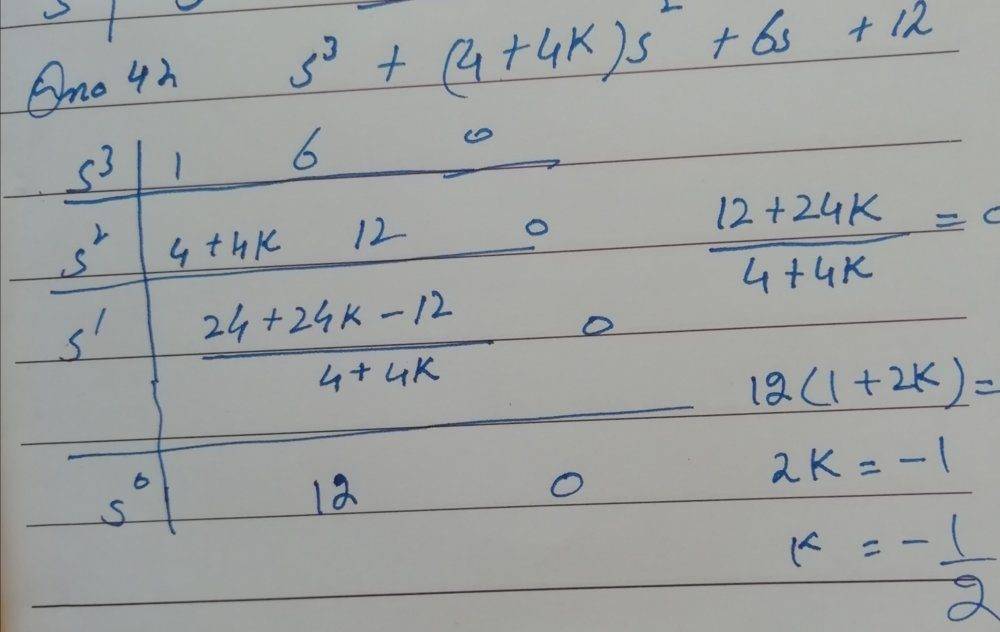 Qno 42 s³ + (4+4K)s² + 6s + 12
s³ | 1 6 0
s² | 4+4K 12 0
s¹ | (24+24K-12)/(4+4K) 0
s⁰ | 12 0
(12+24K)/(4+4K) = 0
12(1+2K) =
2K = -1
K = -1/2